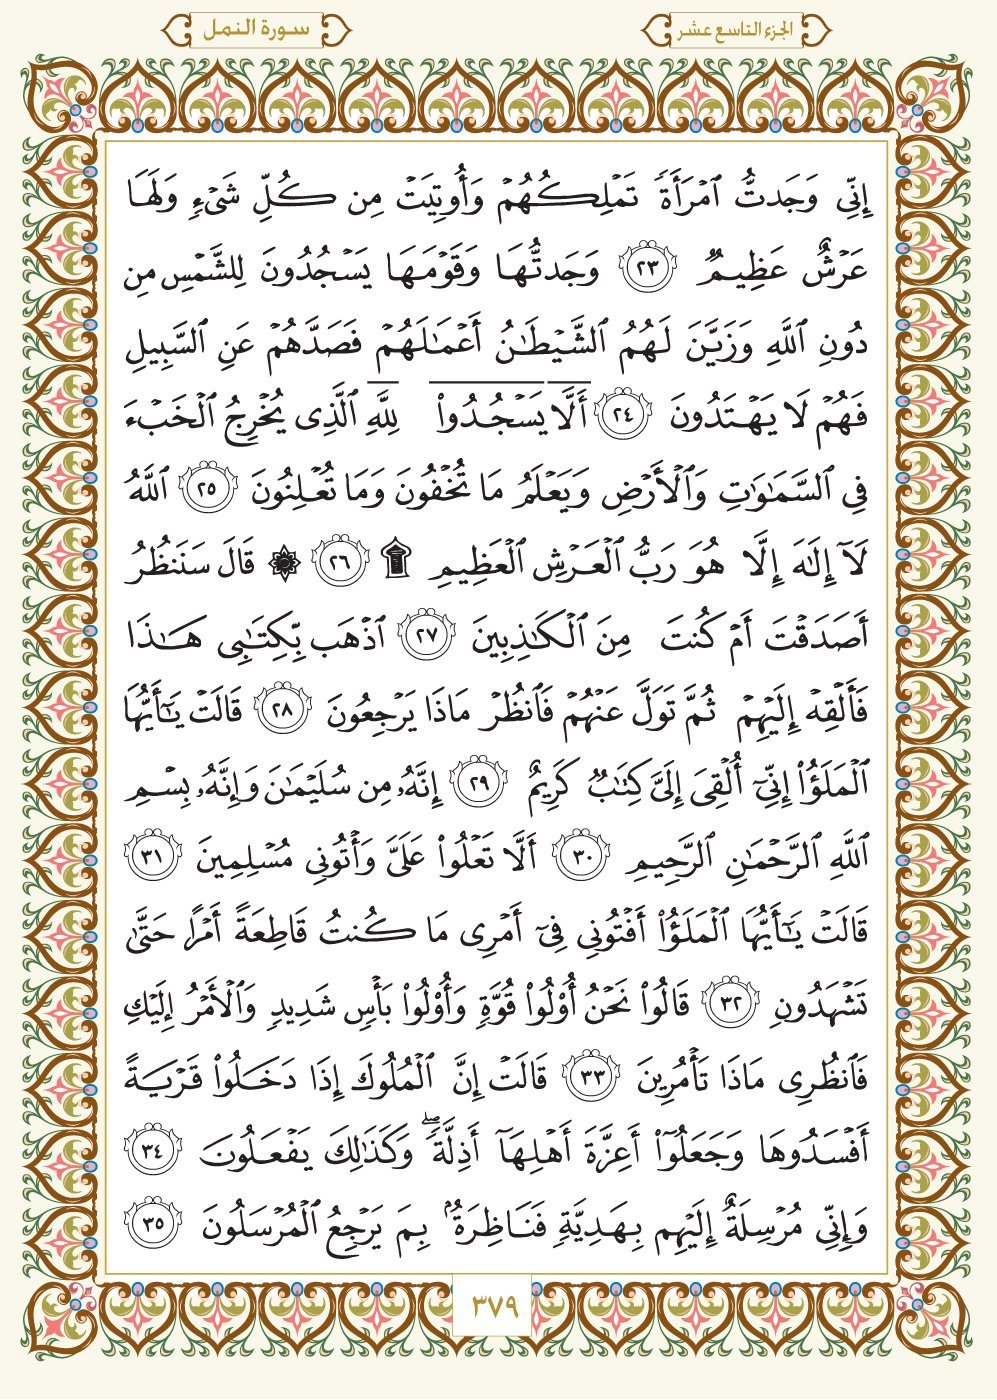 الجزء التاسع عشر
سورة النمل
إِنِّى وَجَدتُّ ٱمۡرَأَةٗ تَمۡلِكُهُمۡ وَأُوتِيَتۡ مِن كُلِّ شَىۡءٖ وَلَهَا
عَرۡشٌ عَظِيمٞ ٢٣ وَجَدتُّهَا وَقَوۡمَهَا يَسۡجُدُونَ لِلشَّمۡسِ مِن
دُونِ ٱللَّهِ وَزَيَّنَ لَهُمُ ٱلشَّيۡطَٰنُ أَعۡمَٰلَهُمۡ فَصَدَّهُمۡ عَنِ ٱلسَّبِيلِ
فَهُمۡ لَا يَهۡتَدُونَ ٢٤ أَلَّا يَسۡجُدُواْ لِلَّهِ ٱلَّذِى يُخۡرِجُ ٱلۡخَبۡءَ
فِى ٱلسَّمَٰوَٰتِ وَٱلۡأَرۡضِ وَيَعۡلَمُ مَا تُخۡفُونَ وَمَا تُعۡلِنُونَ ٢٥ ٱللَّهُ
لَآ إِلَٰهَ إِلَّا هُوَ رَبُّ ٱلۡعَرۡشِ ٱلۡعَظِيمِ ۩ ٢٦ ۞ قَالَ سَنَنظُرُ
أَصَدَقۡتَ أَمۡ كُنتَ مِنَ ٱلۡكَٰذِبِينَ ٢٧ ٱذۡهَب بِّكِتَٰبِى هَٰذَا
فَأَلۡقِهۡ إِلَيۡهِمۡ ثُمَّ تَوَلَّ عَنۡهُمۡ فَٱنظُرۡ مَاذَا يَرۡجِعُونَ ٢٨ قَالَتۡ يَٰٓأَيُّهَا
ٱلۡمَلَؤُاْ إِنِّىٓ أُلۡقِىَ إِلَىَّ كِتَٰبٞ كَرِيمٌ ٢٩ إِنَّهُۥ مِن سُلَيۡمَٰنَ وَإِنَّهُۥ بِسۡمِ
ٱللَّهِ ٱلرَّحۡمَٰنِ ٱلرَّحِيمِ ٣٠ أَلَّا تَعۡلُواْ عَلَىَّ وَأۡتُونِى مُسۡلِمِينَ ٣١
قَالَتۡ يَٰٓأَيُّهَا ٱلۡمَلَؤُاْ أَفۡتُونِى فِىٓ أَمۡرِى مَا كُنتُ قَاطِعَةً أَمۡرًا حَتَّىٰ
تَشۡهَدُونِ ٣٢ قَالُواْ نَحۡنُ أُوْلُواْ قُوَّةٖ وَأُوْلُواْ بَأۡسٖ شَدِيدٖ وَٱلۡأَمۡرُ إِلَيۡكِ
فَٱنظُرِى مَاذَا تَأۡمُرِينَ ٣٣ قَالَتۡ إِنَّ ٱلۡمُلُوكَ إِذَا دَخَلُواْ قَرۡيَةً
أَفۡسَدُوهَا وَجَعَلُوٓاْ أَعِزَّةَ أَهۡلِهَآ أَذِلَّةٗۖ وَكَذَٰلِكَ يَفۡعَلُونَ ٣٤
وَإِنِّى مُرۡسِلَةٌ إِلَيۡهِم بِهَدِيَّةٖ فَنَاظِرَةُۢ بِمَ يَرۡجِعُ ٱلۡمُرۡسَلُونَ ٣٥
٣٧٩